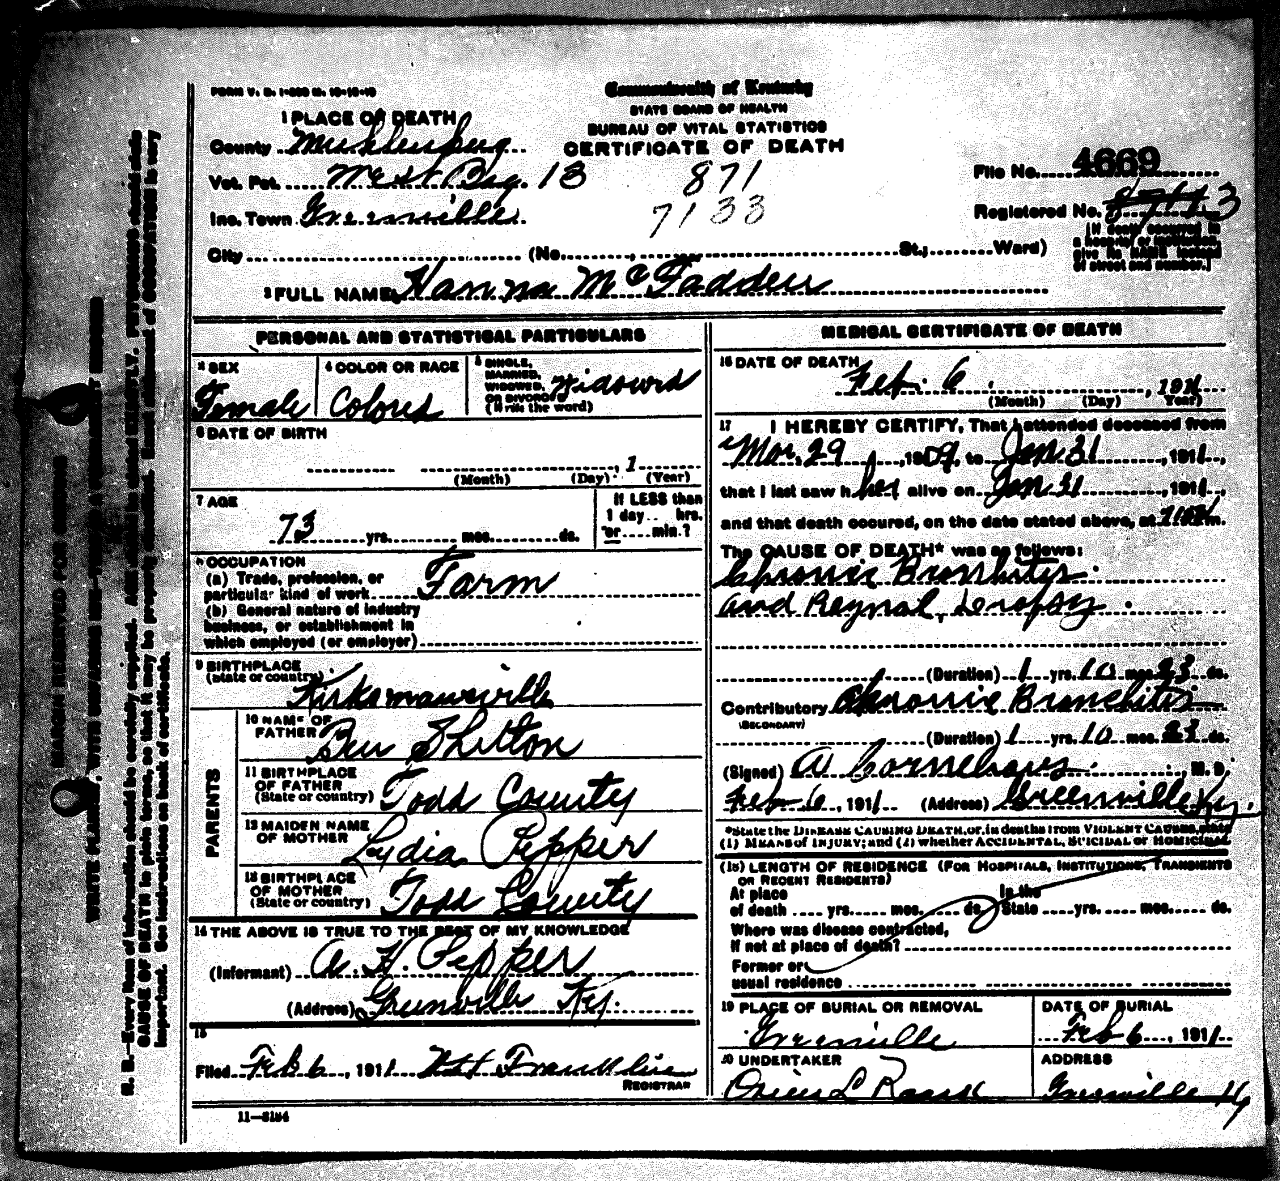 FORM V. S. 1-
Commonwealth of Kentucky
STATE BOARD OF HEALTH
BUREAU OF VITAL STATISTICS
CERTIFICATE OF DEATH
1 PLACE OF DEATH
County Muhlenberg
Vot. Pct. West 13
Inc. Town Greenville
871
7133
File No. 4669
Registered No. 3
[If death occurred in a hospital or institution, give its NAME instead of street and number.]
City (No. , St.; Ward)
2 FULL NAME Hanna McFadden
PERSONAL AND STATISTICAL PARTICULARS
3 SEX Female
4 COLOR OR RACE Colored
5 SINGLE, MARRIED, WIDOWED, OR DIVORCED (Write the word) Widowed
6 DATE OF BIRTH
, 1
(Month) (Day) (Year)
7 AGE
73 yrs. mos. ds.
If LESS than 1 day.. hrs. or.... min.?
8 OCCUPATION
(a) Trade, profession, or particular kind of work Farm
(b) General nature of industry business, or establishment in which employed (or employer)
9 BIRTHPLACE
(State or country) Kirkmansville
PARENTS
10 NAME OF FATHER Ben Shelton
11 BIRTHPLACE OF FATHER (State or country) Todd County
12 MAIDEN NAME OF MOTHER Lydia Pepper
13 BIRTHPLACE OF MOTHER (State or country) Todd County
14 THE ABOVE IS TRUE TO THE BEST OF MY KNOWLEDGE
(Informant) A. H. Pepper
(Address) Greenville Ky.
15
Filed Feb 6, 1911 Franklin
REGISTRAR
11—3184
MEDICAL CERTIFICATE OF DEATH
16 DATE OF DEATH
Feb. 6, 1911
(Month) (Day) Year)
17 I HEREBY CERTIFY, That I attended deceased from
Mar. 29, 1909, to Jan 31, 1911,
that I last saw her alive on Jan 31, 1911,
and that death occured, on the date stated above, at m.
The CAUSE OF DEATH* was as follows:
Chronic Bronhitis
and Reynal, Dropsy.
(Duration) 1 yrs. 10 mos. 23 ds.
Contributory Chronic Bronchitis
(SECONDARY)
(Duration) 1 yrs. 10 mos. 23 ds.
(Signed) A , M. D.
Feb 6, 1911 (Address) Greenville Ky.
*State the DISEASE CAUSING DEATH, or, in deaths from VIOLENT CAUSES, state
(1) MEANS of INJURY; and (2) whether ACCIDENTAL, SUICIDAL or HOMICIDAL
(18) LENGTH OF RESIDENCE (FOR HOSPITALS, INSTITUTIONS, TRANSIENTS
OR RECENT RESIDENTS)
At place of death .... yrs..... mos..... ds. In the State ....yrs..... mos..... ds.
Where was disease contracted,
if not at place of death?
Former or
usual residence
19 PLACE OF BURIAL OR REMOVAL
Greenville
DATE OF BURIAL
Feb 6, 1911
20 UNDERTAKER
Orien L Roark
ADDRESS
Greenville Ky
MARGIN RESERVED FOR BINDING
WRITE PLAINLY, WITH UNFADING INK—THIS IS A PERMANENT RECORD
N. B.—Every item of information should be carefully supplied. AGE should be stated EXACTLY. PHYSICIANS should state
CAUSE OF DEATH in plain terms, so that it may be properly classified. Exact statement of OCCUPATION is very
important. See instructions on back of certificate.